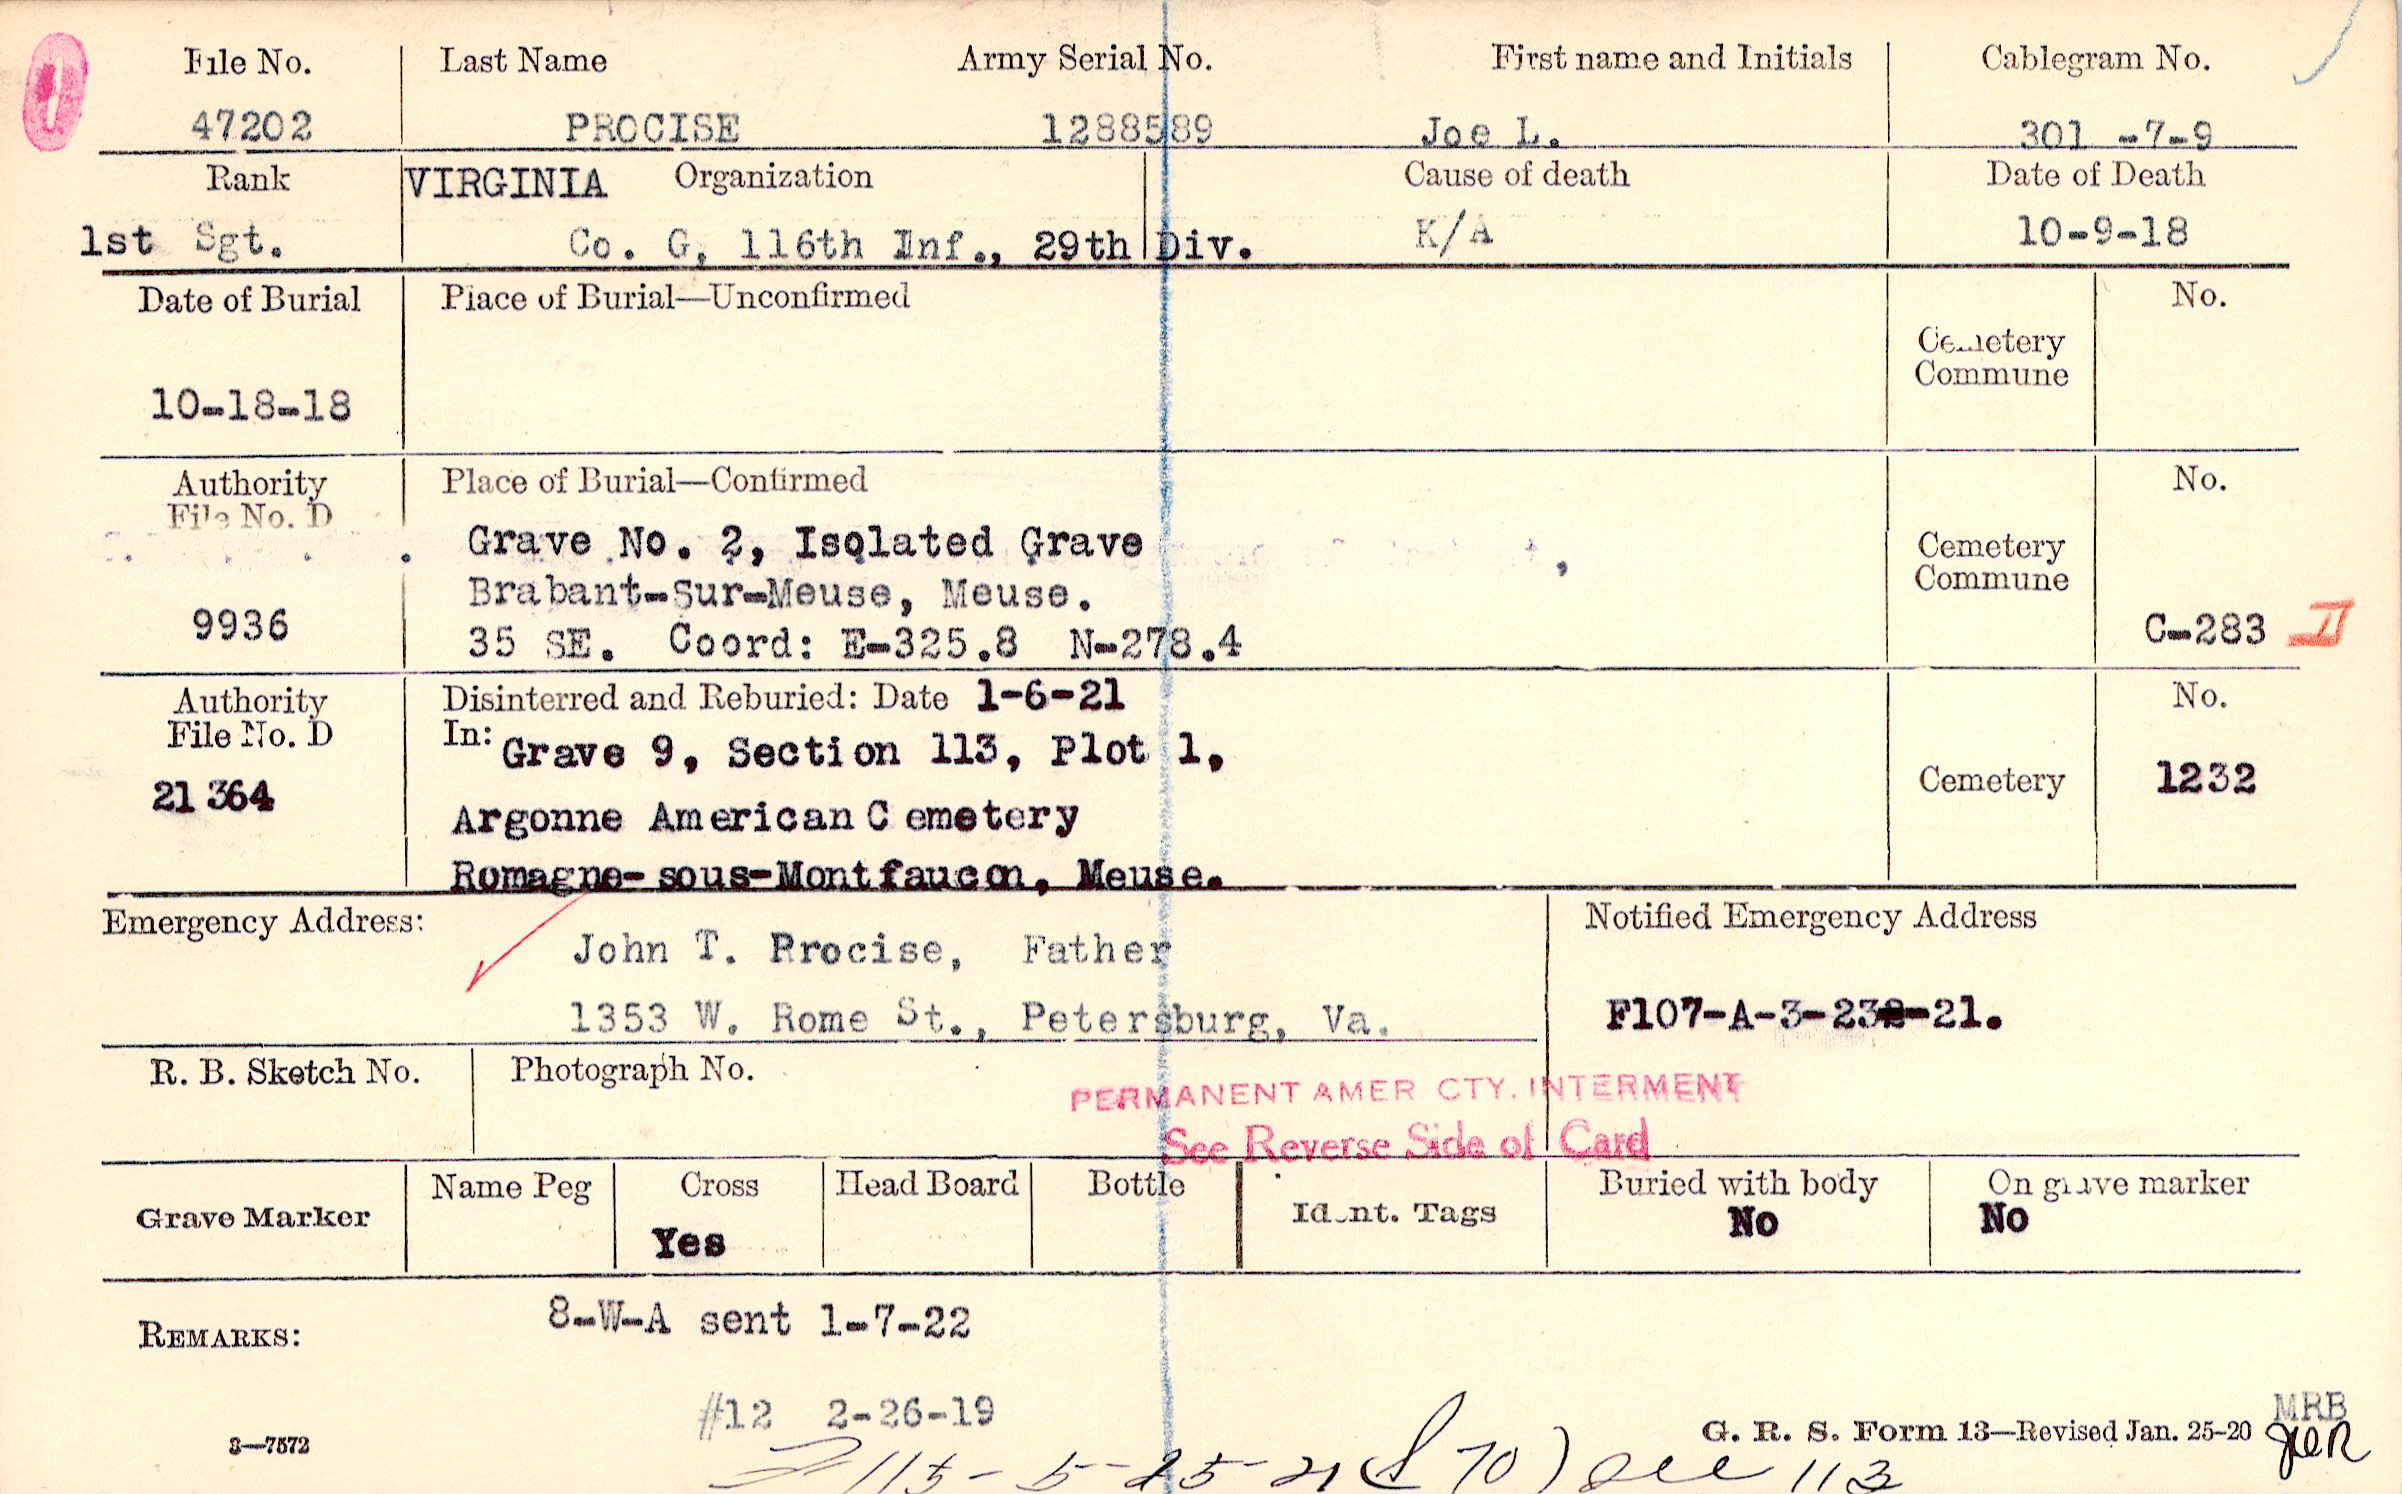 File No. Last Name Army Serial No. First name and Initials Cablegram No.
47202 PROCISE 1288589 Joe L. 301 -7-9
Rank VIRGINIA Organization Cause of death Date of Death
1st Sgt. Co. G, 116th Inf., 29th Div. K/A 10-9-18
Date of Burial Place of Burial—Unconfirmed No.
Cemetery
Commune
10-18-18
Authority Place of Burial—Confirmed No.
File No. D
Grave No. 2, Isolated Grave Cemetery
Brabant-Sur-Meuse, Meuse. Commune
9936 35 SE. Coord: E-325.8 N-278.4 C-283 II
Authority Disinterred and Reburied: Date 1-6-21 No.
File No. D In: Grave 9, Section 113, Plot 1,
21364 Cemetery 1232
Argonne American Cemetery
Romagne-sous-Montfaucon, Meuse.
Emergency Address: Notified Emergency Address
John T. Procise, Father
1353 W. Rome St., Petersburg, Va. F107-A-3-23-21.
R. B. Sketch No. Photograph No.
PERMANENT AMER CTY. INTERMENT
See Reverse Side of Card
Grave Marker Name Peg Cross Head Board Bottle Ident. Tags Buried with body On grave marker
Yes No No
REMARKS: 8-W-A sent 1-7-22
#12 2-26-19
3—7572 G. R. S. Form 13—Revised Jan. 25-20 MRB
115-5-25-21 ( 70) see 113